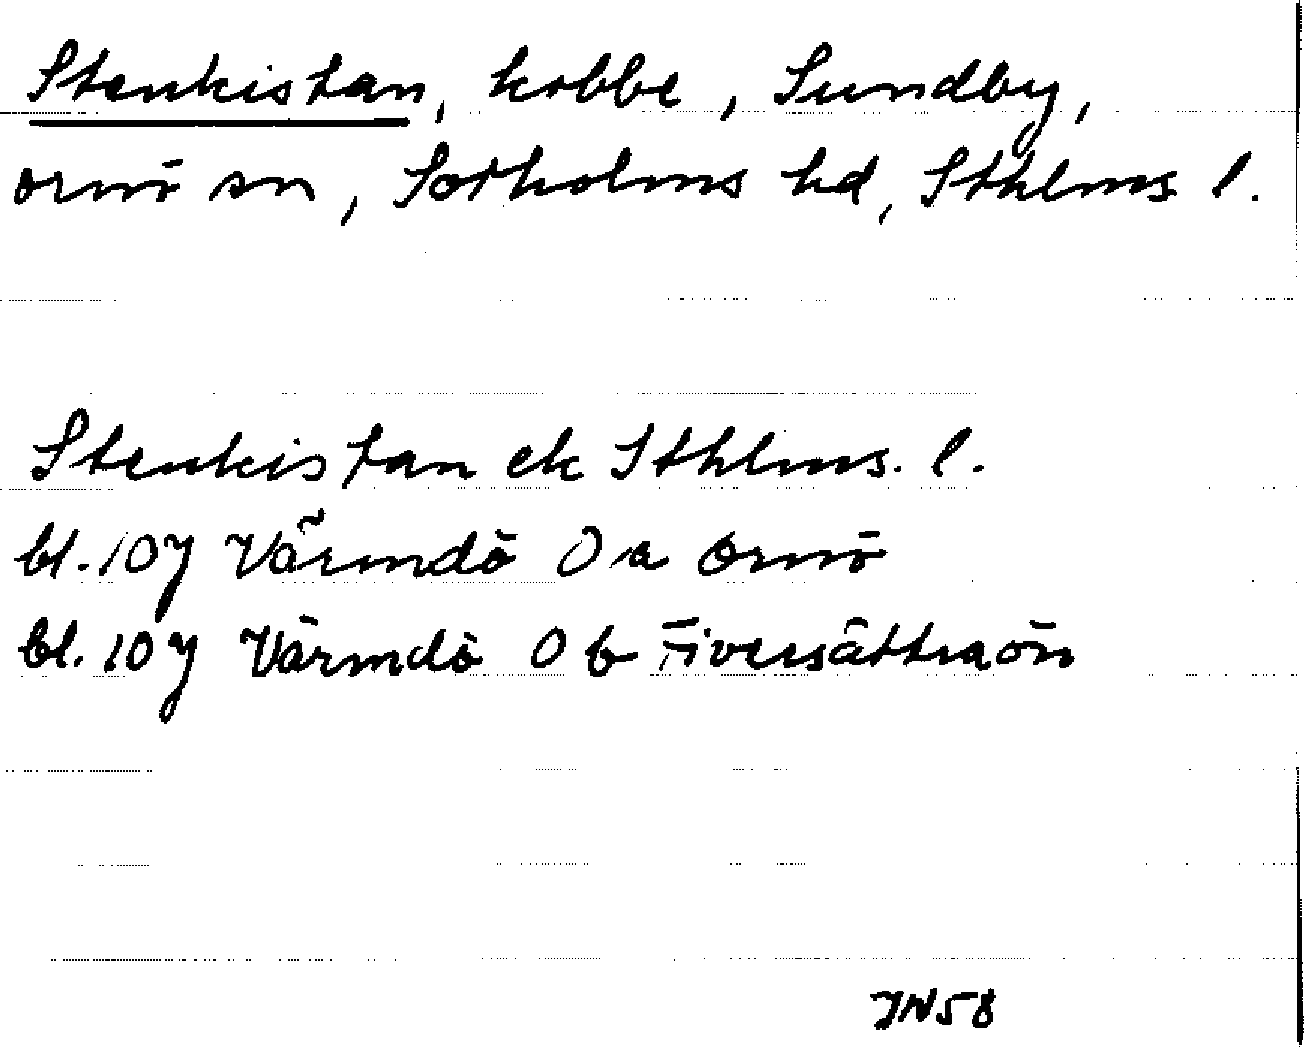 Stenkistan, kobbe, Sundby,
Ornö sn, Sotholms hd, Sthlms l.
Stenkistan ek Sthlms. l.
bl. 10 J Värmdö O a Ornö
bl. 10 J Värmdö O b Fiversättraön
JN58